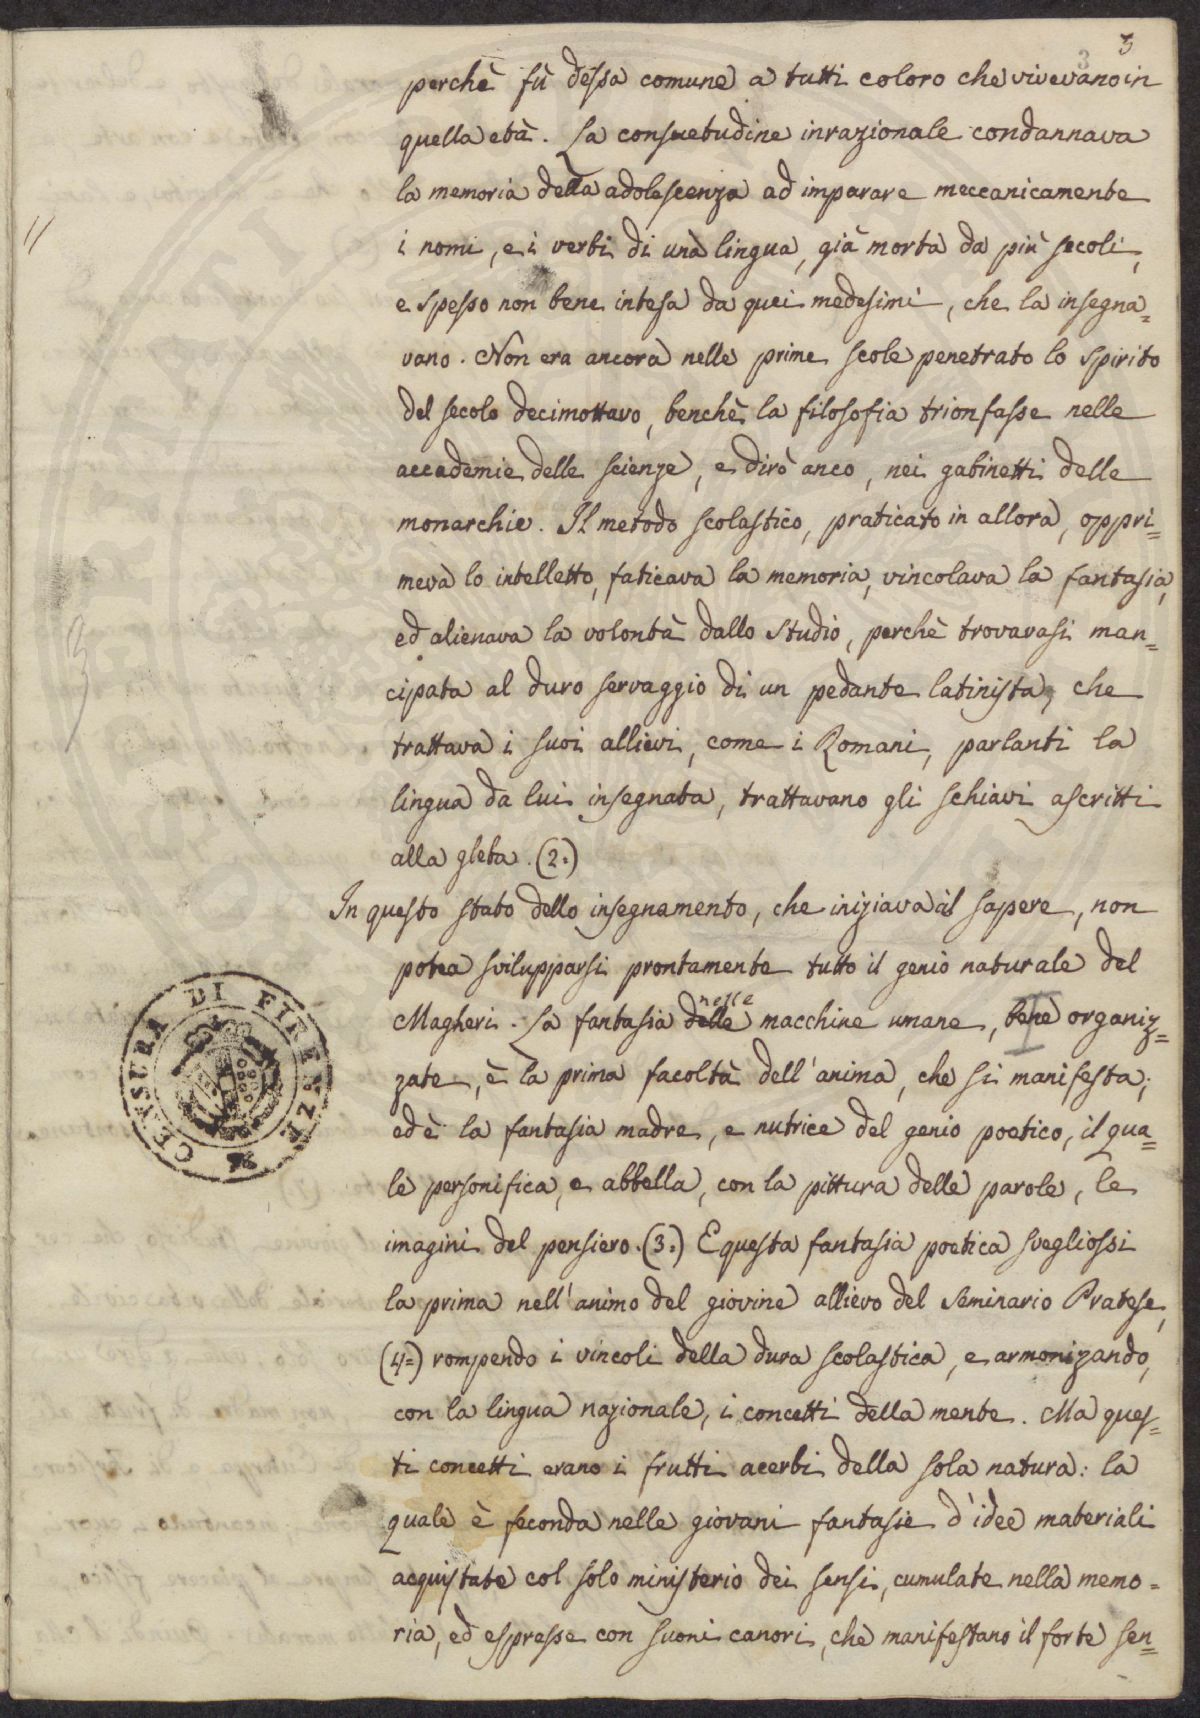 3
3
perchè fù dessa comune a tutti coloro che vivevano in
quella età. La consuetudine inrazionale condannava
la memoria della adolescenza ad imparare meccanicamente
i nomi, e i verbi di una lingua, già morta da più secoli,
e spesso non bene intesa da quei medesimi, che la insegna=
vano. Non era ancora nelle prime scole penetrato lo spirito
del secolo decimottavo, benchè la filosofia trionfasse nelle
accademie delle scienze, e dirò anco, nei gabinetti delle
monarchie. Il metodo scolastico, praticato in allora, oppri=
meva lo intelletto, faticava la memoria, vincolava la fantasia,
ed alienava la volontà dallo studio, perchè trovavasi man=
cipata al duro servaggio di un pedante latinista, che
trattava i suoi allievi, come i Romani, parlanti la
lingua da lui insegnata, trattavano gli schiavi ascritti
alla gleba. (2.)
In questo stato dello insegnamento, che iniziava al sapere, non
potea svilupparsi prontamente tutto il genio naturale del
Magheri. La fantasia delle nelle macchine umane, bene organiz=
zate, è la prima facoltà dell'anima, che si manifesta;
ed è la fantasia madre, e nutrice del genio poetico, il qua=
le personifica, e abbella, con la pittura delle parole, le
imagini del pensiero. (3.) E questa fantasia poetica svegliossi
la prima nell'animo del giovine allievo del Seminario Pratese,
(4=) rompendo i vincoli della dura scolastica, e armonizando,
con la lingua nazionale, i concetti della mente. Ma ques=
ti concetti erano i frutti acerbi della sola natura: la
quale è feconda nelle giovani fantasie d'idee materiali
acquistate col solo ministerio dei sensi, cumulate nella memo=
ria, ed espresse con suoni canori, che manifestano il forte sen=
CENSURA DI FIRENZE